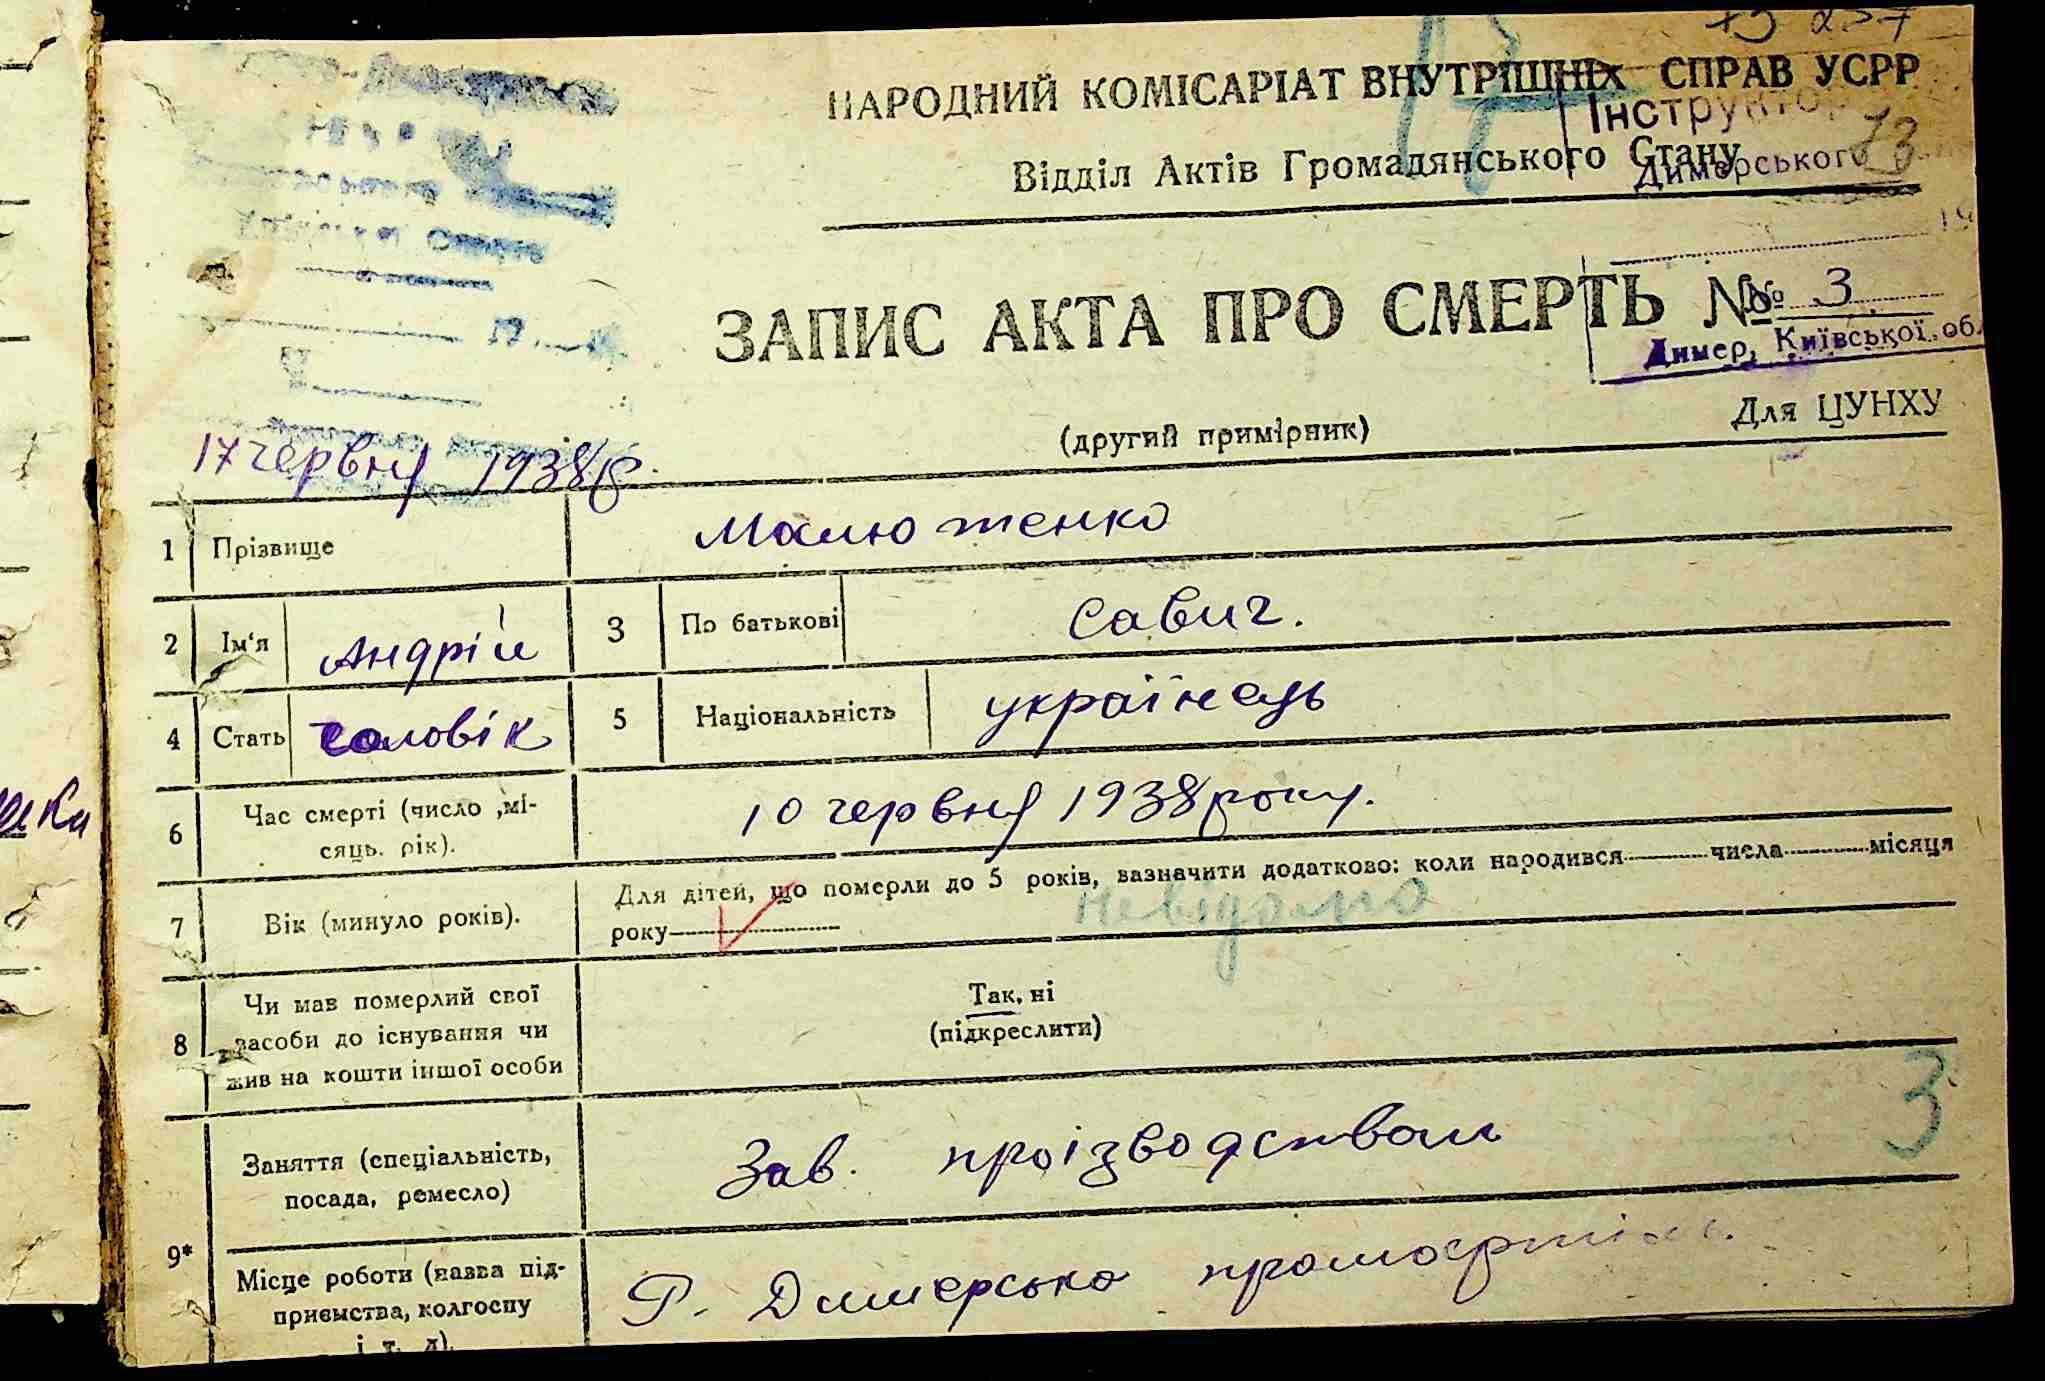 НАРОДНИЙ КОМІСАРІАТ ВНУТРІШНІХ СПРАВ УСРР
Інструктор
13
Відділ Актів Громадянського Стану
Димерського
ЗАПИС АКТА ПРО СМЕРТЬ № № 3
Димер, Київської обл.
(другий примірник)
Для ЦУНХУ
17 червня 1938 р.
1 Прізвище Малютенко
2 Ім'я Андрій 3 По батькові Савич.
4 Стать чоловік 5 Національність українець
6 Час смерті (число ,мі-
сяць. рік).
10 червня 1938 року.
7 Вік (минуло років).
Для дітей, що померли до 5 років, вазначити додатково: коли народився числа місяця
року
невідомо
8 Чи мав померлий свої
засоби до існування чи
жив на кошти іншої особи
Так, ні
(підкреслити)
3
9* Заняття (спеціальність,
посада, ремесло)
Зав. проізводством
Місце роботи (назва під-
приємства, колгоспу
і т. д).
Р. Димерська промартіль.